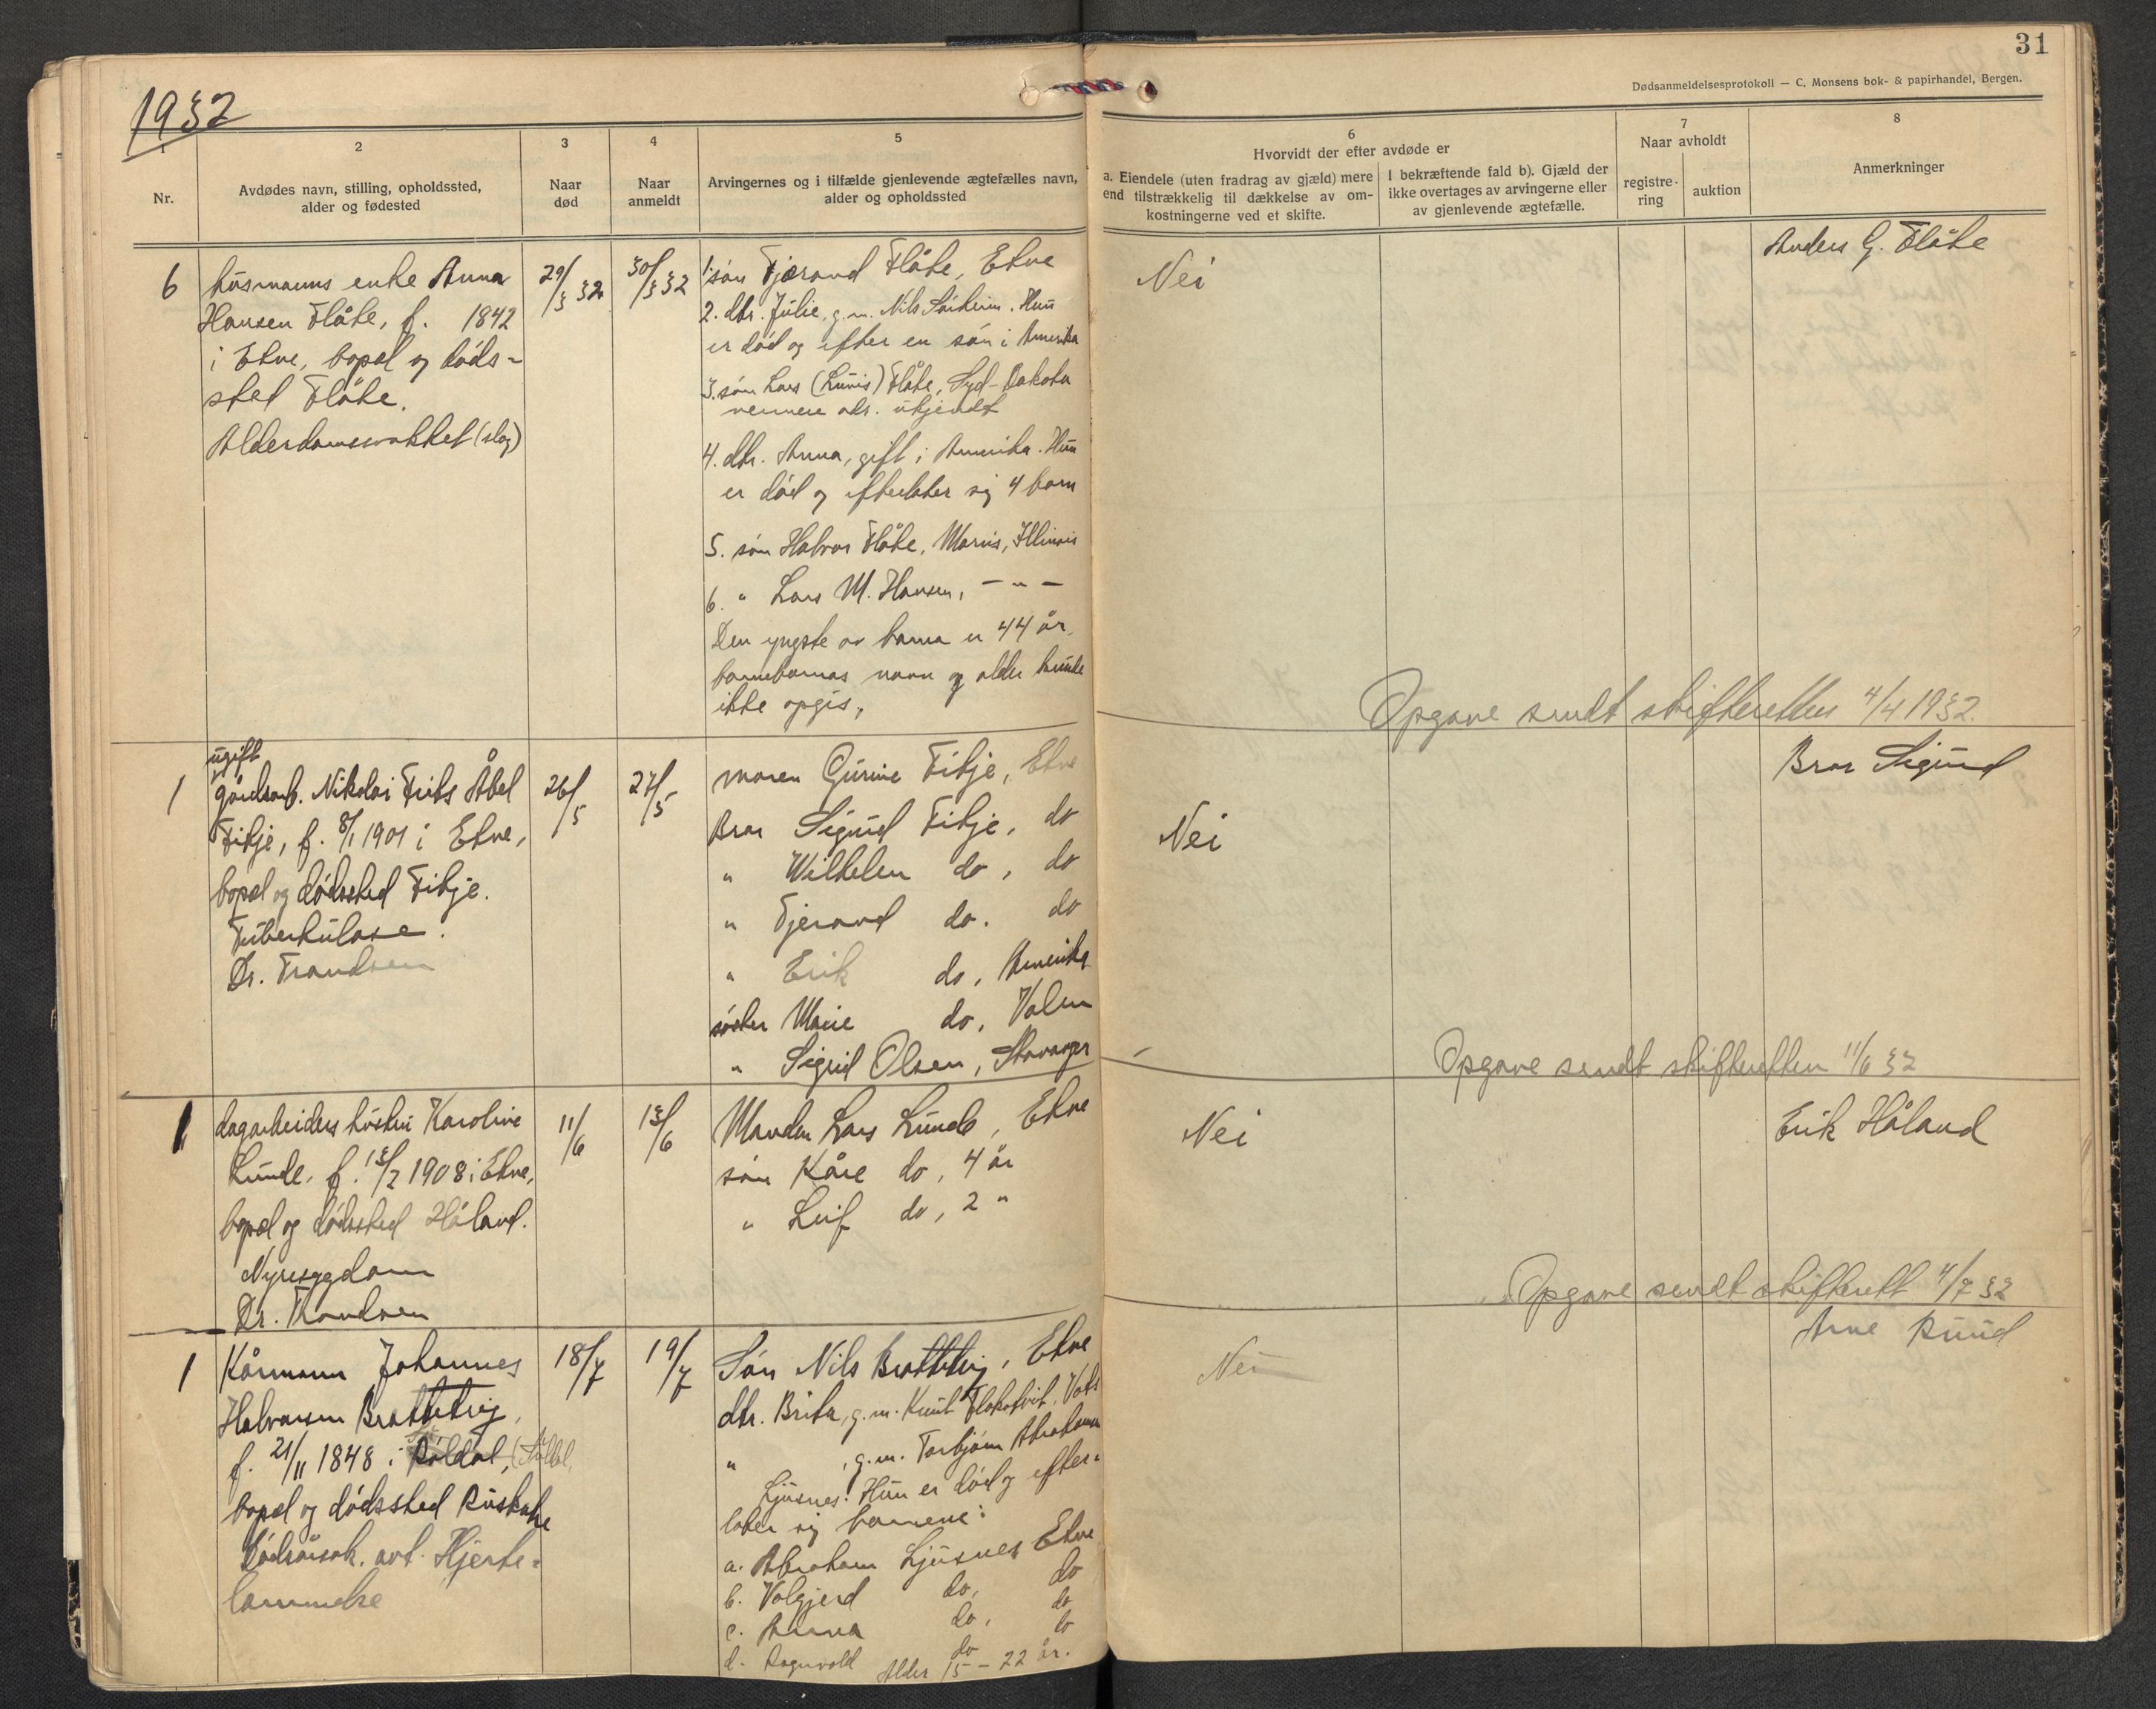 31
Dødsanmeldelsesprotokoll — C. Monsens bok- & papirhandel, Bergen.
1932
1
2
3
4
5
6
7
8
Nr.
Avdødes navn, stilling, opholdssted,
alder og fødested
Naar
død
Naar
anmeldt
Arvingernes og i tilfælde gjenlevende ægtefælles navn,
alder og opholdssted
Hvorvidt der efter avdøde er
a. Eiendele (uten fradrag av gjæld) mere
end tilstrækkelig til dækkelse av om-
kostningerne ved et skifte.
I bekræftende fald b). Gjæld der
ikke overtages av arvingerne eller
av gjenlevende ægtefælle.
Naar avholdt
registre-
ring
auktion
Anmerkninger
6
husmanns enke Anna
Hansen Flåte, f. 1842
i Etne, bopel og døds-
sted Flåte.
Alderdomssvakhet (slag)
29/3 32
30/3 32
1. søn Tjerand Flåte, Etne
2. dtr. Julie, g.m. Nils Sørheim. Hun
er død og efter en søn i Amerika
3. søn Lars (Louis) Flåte, Syd-Dakota
nermere adr. ukjendt
4. dtr. Anna, gift i Amerika. Hun
er død og efterlater sig 4 barn
5. søn Halvor Flåte, Morris, Illinois
6. " Lars M. Hansen, — " —
Den yngste av barna er 44 år,
barnebarnas navn og alder kunde
ikke opgis,
Nei
Anders G. Flåte
Opgave sendt skifteretten 4/4 1932.
1
ugift
gårdsarb. Nikolai Frits Åbel
Fitje, f. 8/1 1901 i Etne,
bopel og dødssted Fitje.
Tuberkulose.
Dr. Frandsen
26/5
27/5
moren Gurine Fitje, Etne
Bror Sigurd Fitje, do
" Wilhelm do, do
" Tjerand do. do
" Erik do, Amerika
søster Marie do, Valen
" Sigrid Olsen, Stavanger
Nei
Bror Sigurd
Opgave sendt skifteretten 11/6 32
1
dagarbeiders hustru Karoline
Lunde, f. 13/2 1908 i Etne,
bopel og dødssted Håland.
Nyresygdom
Dr. Frandsen
11/6
13/6
Manden Lars Lunde, Etne
søn Kåre do, 4 år
" Leif do, 2 "
Nei
Erik Håland
Opgave sendt skifterett 4/7 32
1
Kårmann Johannes
Halvorsen Brattetveig,
f. 21/11 1848 i Røldal,
bopel og dødssted
Dødsårsak. ant. Hjerte-
lammelse
18/7
19/7
Søn Nils Brattetveig, Etne
dtr. Brita, g.m. Knut Flokatveit, Vats
" , g.m. Torbjørn Abrahamsen
Ljusnes. Hun er død og efter-
later sig barnene:
a. Abraham Ljusnes Etne
b. Valgjerd do, do
c. Anna do, do
d. Ragnvald do do
Alder 15 - 22 år.
Nei
Arne Ruud